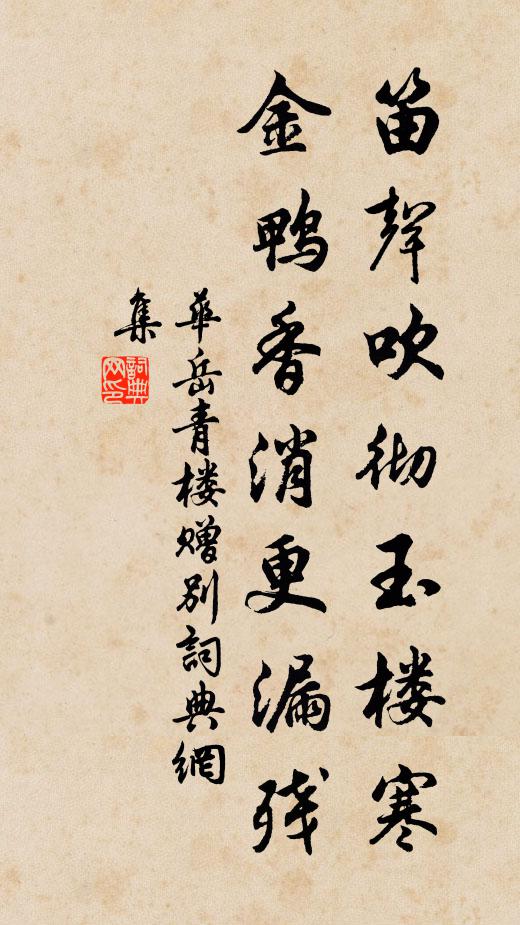 笛聲吹彻玉楼寒
金鸭香消更漏残
華岳青楼赠别詞典網
集
詞典网印